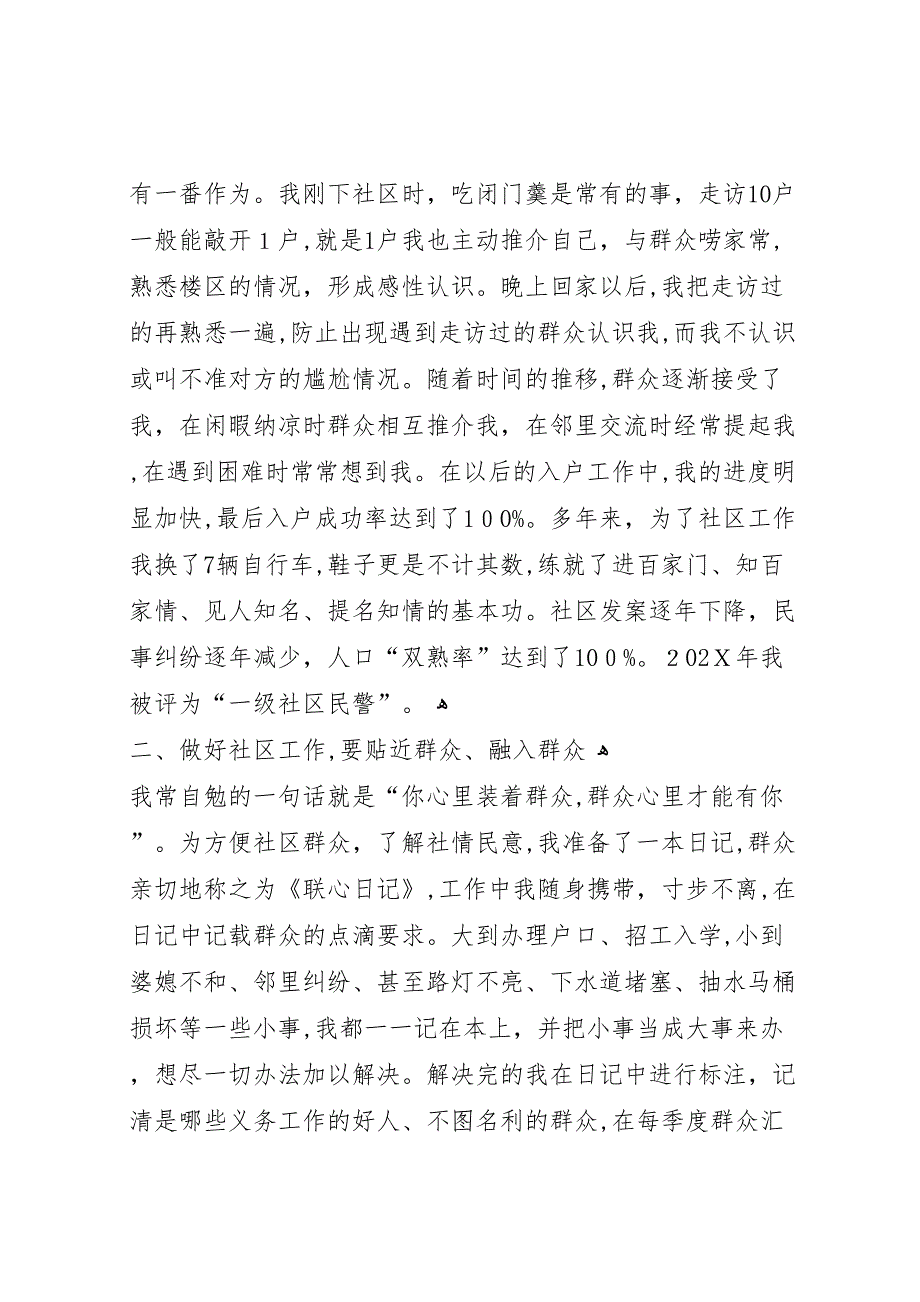 有一番作为。我刚下社区时，吃闭门羹是常有的事，走访10户
一般能敲开１户,就是1户我也主动推介自己，与群众唠家常,
熟悉楼区的情况，形成感性认识。晚上回家以后,我把走访过
的再熟悉一遍,防止出现遇到走访过的群众认识我,而我不认识
或叫不准对方的尴尬情况。随着时间的推移,群众逐渐接受了
我，在闲暇纳凉时群众相互推介我，在邻里交流时经常提起我
,在遇到困难时常常想到我。在以后的入户工作中,我的进度明
显加快,最后入户成功率达到了１００%。多年来，为了社区工作
我换了7辆自行车,鞋子更是不计其数,练就了进百家门、知百
家情、见人知名、提名知情的基本功。社区发案逐年下降，民
事纠纷逐年减少，人口“双熟率”达到了10０%。２02Ｘ年我
被评为“一级社区民警”。ﻫ
二、做好社区工作,要贴近群众、融入群众ﻫ
我常自勉的一句话就是“你心里装着群众,群众心里才能有你
”。为方便社区群众，了解社情民意,我准备了一本日记,群众
亲切地称之为《联心日记》,工作中我随身携带，寸步不离,在
日记中记载群众的点滴要求。大到办理户口、招工入学,小到
婆媳不和、邻里纠纷、甚至路灯不亮、下水道堵塞、抽水马桶
损坏等一些小事,我都一一记在本上，并把小事当成大事来办
，想尽一切办法加以解决。解决完的我在日记中进行标注，记
清是哪些义务工作的好人、不图名利的群众,在每季度群众汇